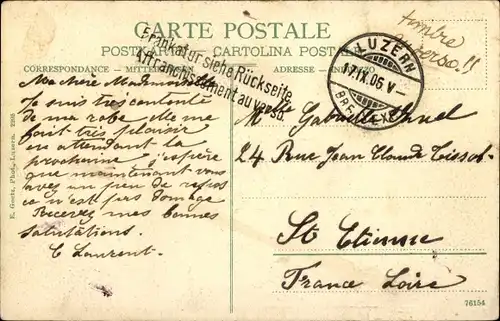 CARTE POSTALE
POSTKARTE CARTOLINA POSTALE
CORRESPONDANCE - MITTEILUNGEN
ADRESSE -
timbre
au verso.!!
Frankatur siehe Rückseite
Affranchissement au verso.
LUZERN
17.IX.06 V—
BRF. EXP.
Ma chère Mademoiselle
Je suis très contente
de ma robe elle me
fait très plaisir
en attendant la
prochaine j'espère
que maintenant vous
avez un peu de repos
ce n'est pas domage
Recevez mes bonnes
salutations.
C Laurent.
Mlle Gabrielle
24 Rue Jean Claude Tissot
St Etienne
France Loire
E. Goetz, Phot., Luzern. 2085
76154